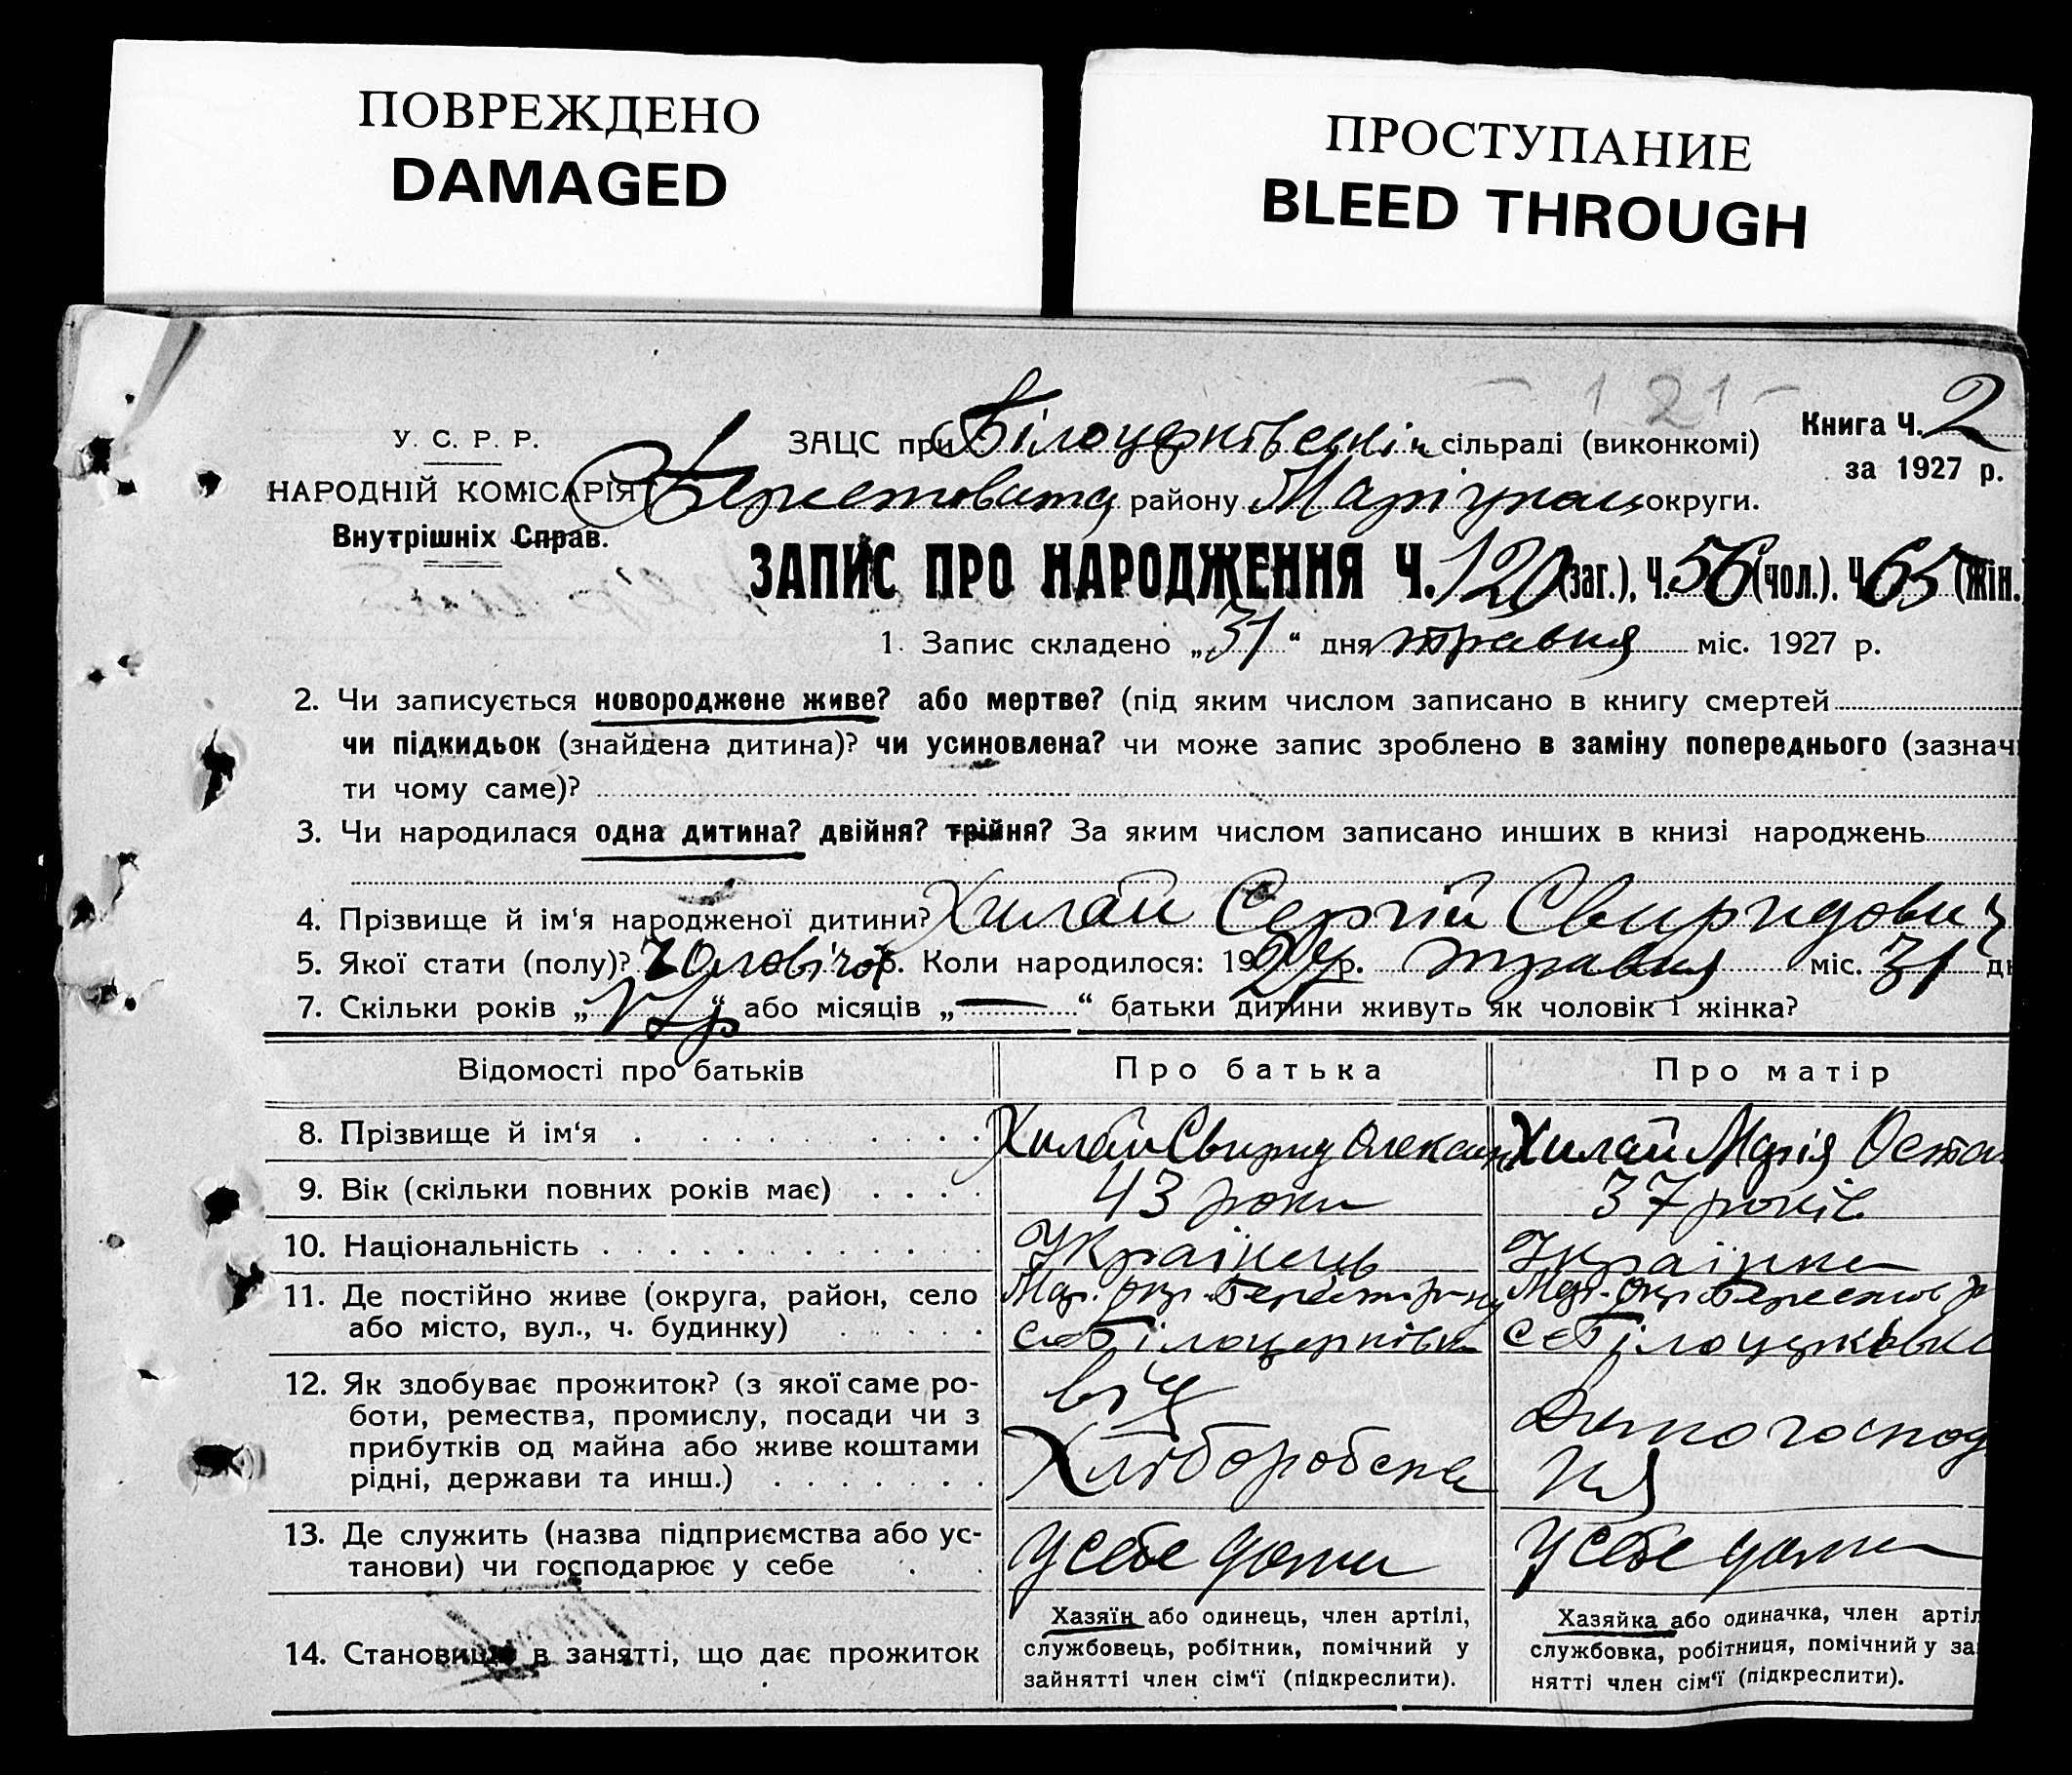 ПОВРЕЖДЕНО
DAMAGED
ПРОСТУПАНИЕ
BLEED THROUGH
- 121 -
Книга Ч. 2
за 1927 р.
У. С. Р. Р.
НАРОДНІЙ КОМІСАРІЯТ
Внутрішніх Справ.
ЗАЦС при Білоцерківській сільраді (виконкомі)
району Маріупольс округи.
ЗАПИС ПРО НАРОДЖЕННЯ Ч. 120 (заг.), Ч. 56 (чол.). Ч. 65 (жін.
1. Запис складено „31“ дня травня міс. 1927 р.
2. Чи записується новороджене живе? або мертве? (під яким числом записано в книгу смертей
чи підкидьок (знайдена дитина)? чи усиновлена? чи може запис зроблено в заміну попереднього (зазначи
ти чому саме)?
3. Чи народилася одна дитина? двійня? трійня? За яким числом записано инших в книзі народжень
4. Прізвище й ім‘я народженої дитини? Хилай Сергій Свиридович
5. Якої стати (полу)? Чоловічої 6. Коли народилося: 1927 р. травня міс. 31 дн
7. Скільки років „ “ або місяців „—“ батьки дитини живуть як чоловік і жінка?
Відомості про батьків
Про батька
Про матір
8. Прізвище й ім‘я
Хилай Свирид Олексан
Хилай Марія Остап
9. Вік (скільки повних років має)
43 роки
37 років
10. Національність
Українець
Українка
11. Де постійно живе (округа, район, село
або місто, вул., ч. будинку)
Мар. окр. Берест. р-ну
с. Білоцерківка
Мар. окр. Берестов р
с. Білоцерківка
12. Як здобуває прожиток? (з якої саме ро-
боти, ремества, промислу, посади чи з
прибутків од майна або живе коштами
рідні, держави та инш.)
від
Хліборобства
Домогоспод
ня
13. Де служить (назва підприємства або ус-
танови) чи господарює у себе
У себе дома
У себе дома
14. Становище в занятті, що дає прожиток
Хазяїн або одинець, член артілі,
службовець, робітник, помічний у
зайнятті член сім‘ї (підкреслити).
Хазяйка або одиначка, член артіл
службовка, робітниця, помічний у за
нятті член сім‘ї (підкреслити).